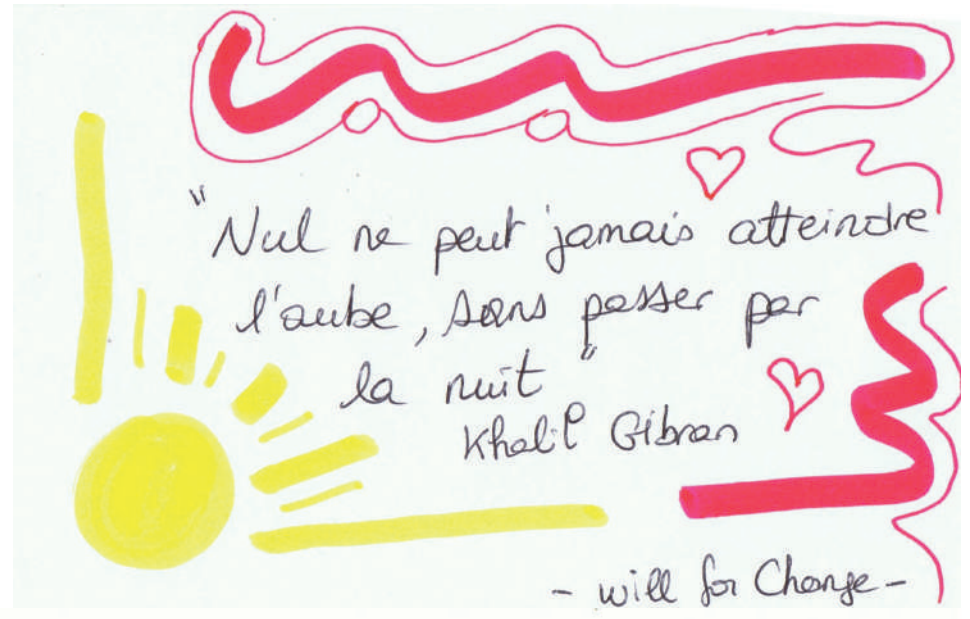 "Nul ne peut jamais atteindre
l'aube, sans passer par
la nuit"
Khalil Gibran
- will for Change -